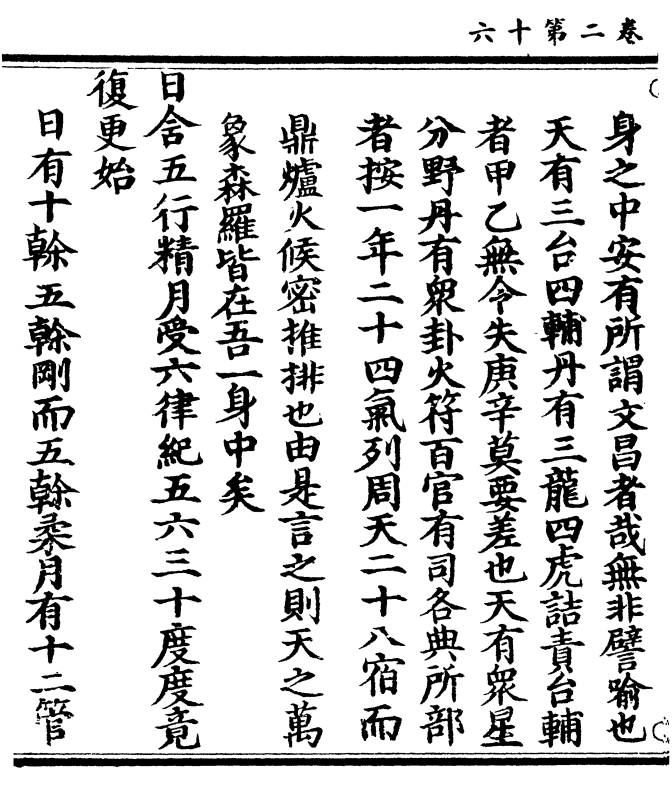 卷二第十六
身之中安有所謂文昌者哉無非譬喻也
天有三台四輔丹有三龍四虎詰責台輔
者甲乙無令失庚辛莫要差也天有眾星
分野丹有眾卦火符百官有司各典所部
者按一年二十四氣列周天二十八宿而
鼎爐火候密推排也由是言之則天之萬
象森羅皆在吾一身中矣
日舍五行精月受六律紀五六三十度度竟
復更始
日有十榦五榦剛而五榦柔月有十二管